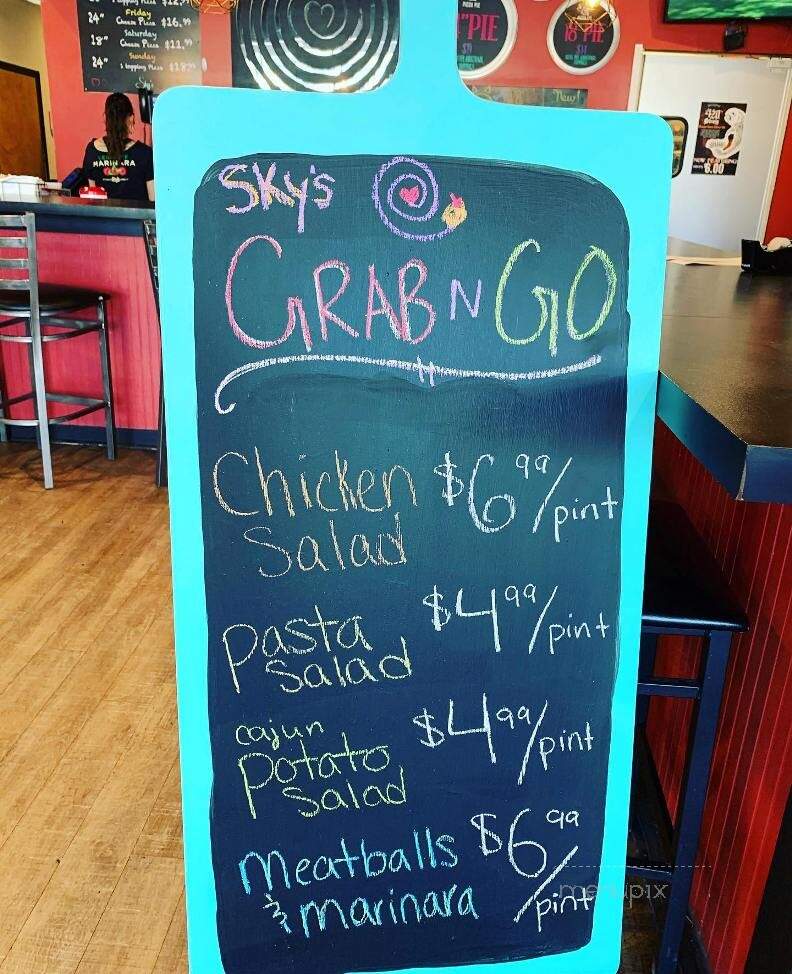 24" Friday
Cheese Pizza $16.99
Saturday
18" Cheese Pizza $11.99
Sunday
24" 1 topping Pizza
"PIE
18" PIE
New!
MARINARA
6.00
SKY'S
GRAB N GO
Chicken $6.99/pint
Salad
Pasta $4.99/pint
Salad
Cajun
Potato $4.99/pint
Salad
Meatballs $6.99
& marinara /pint
menupix